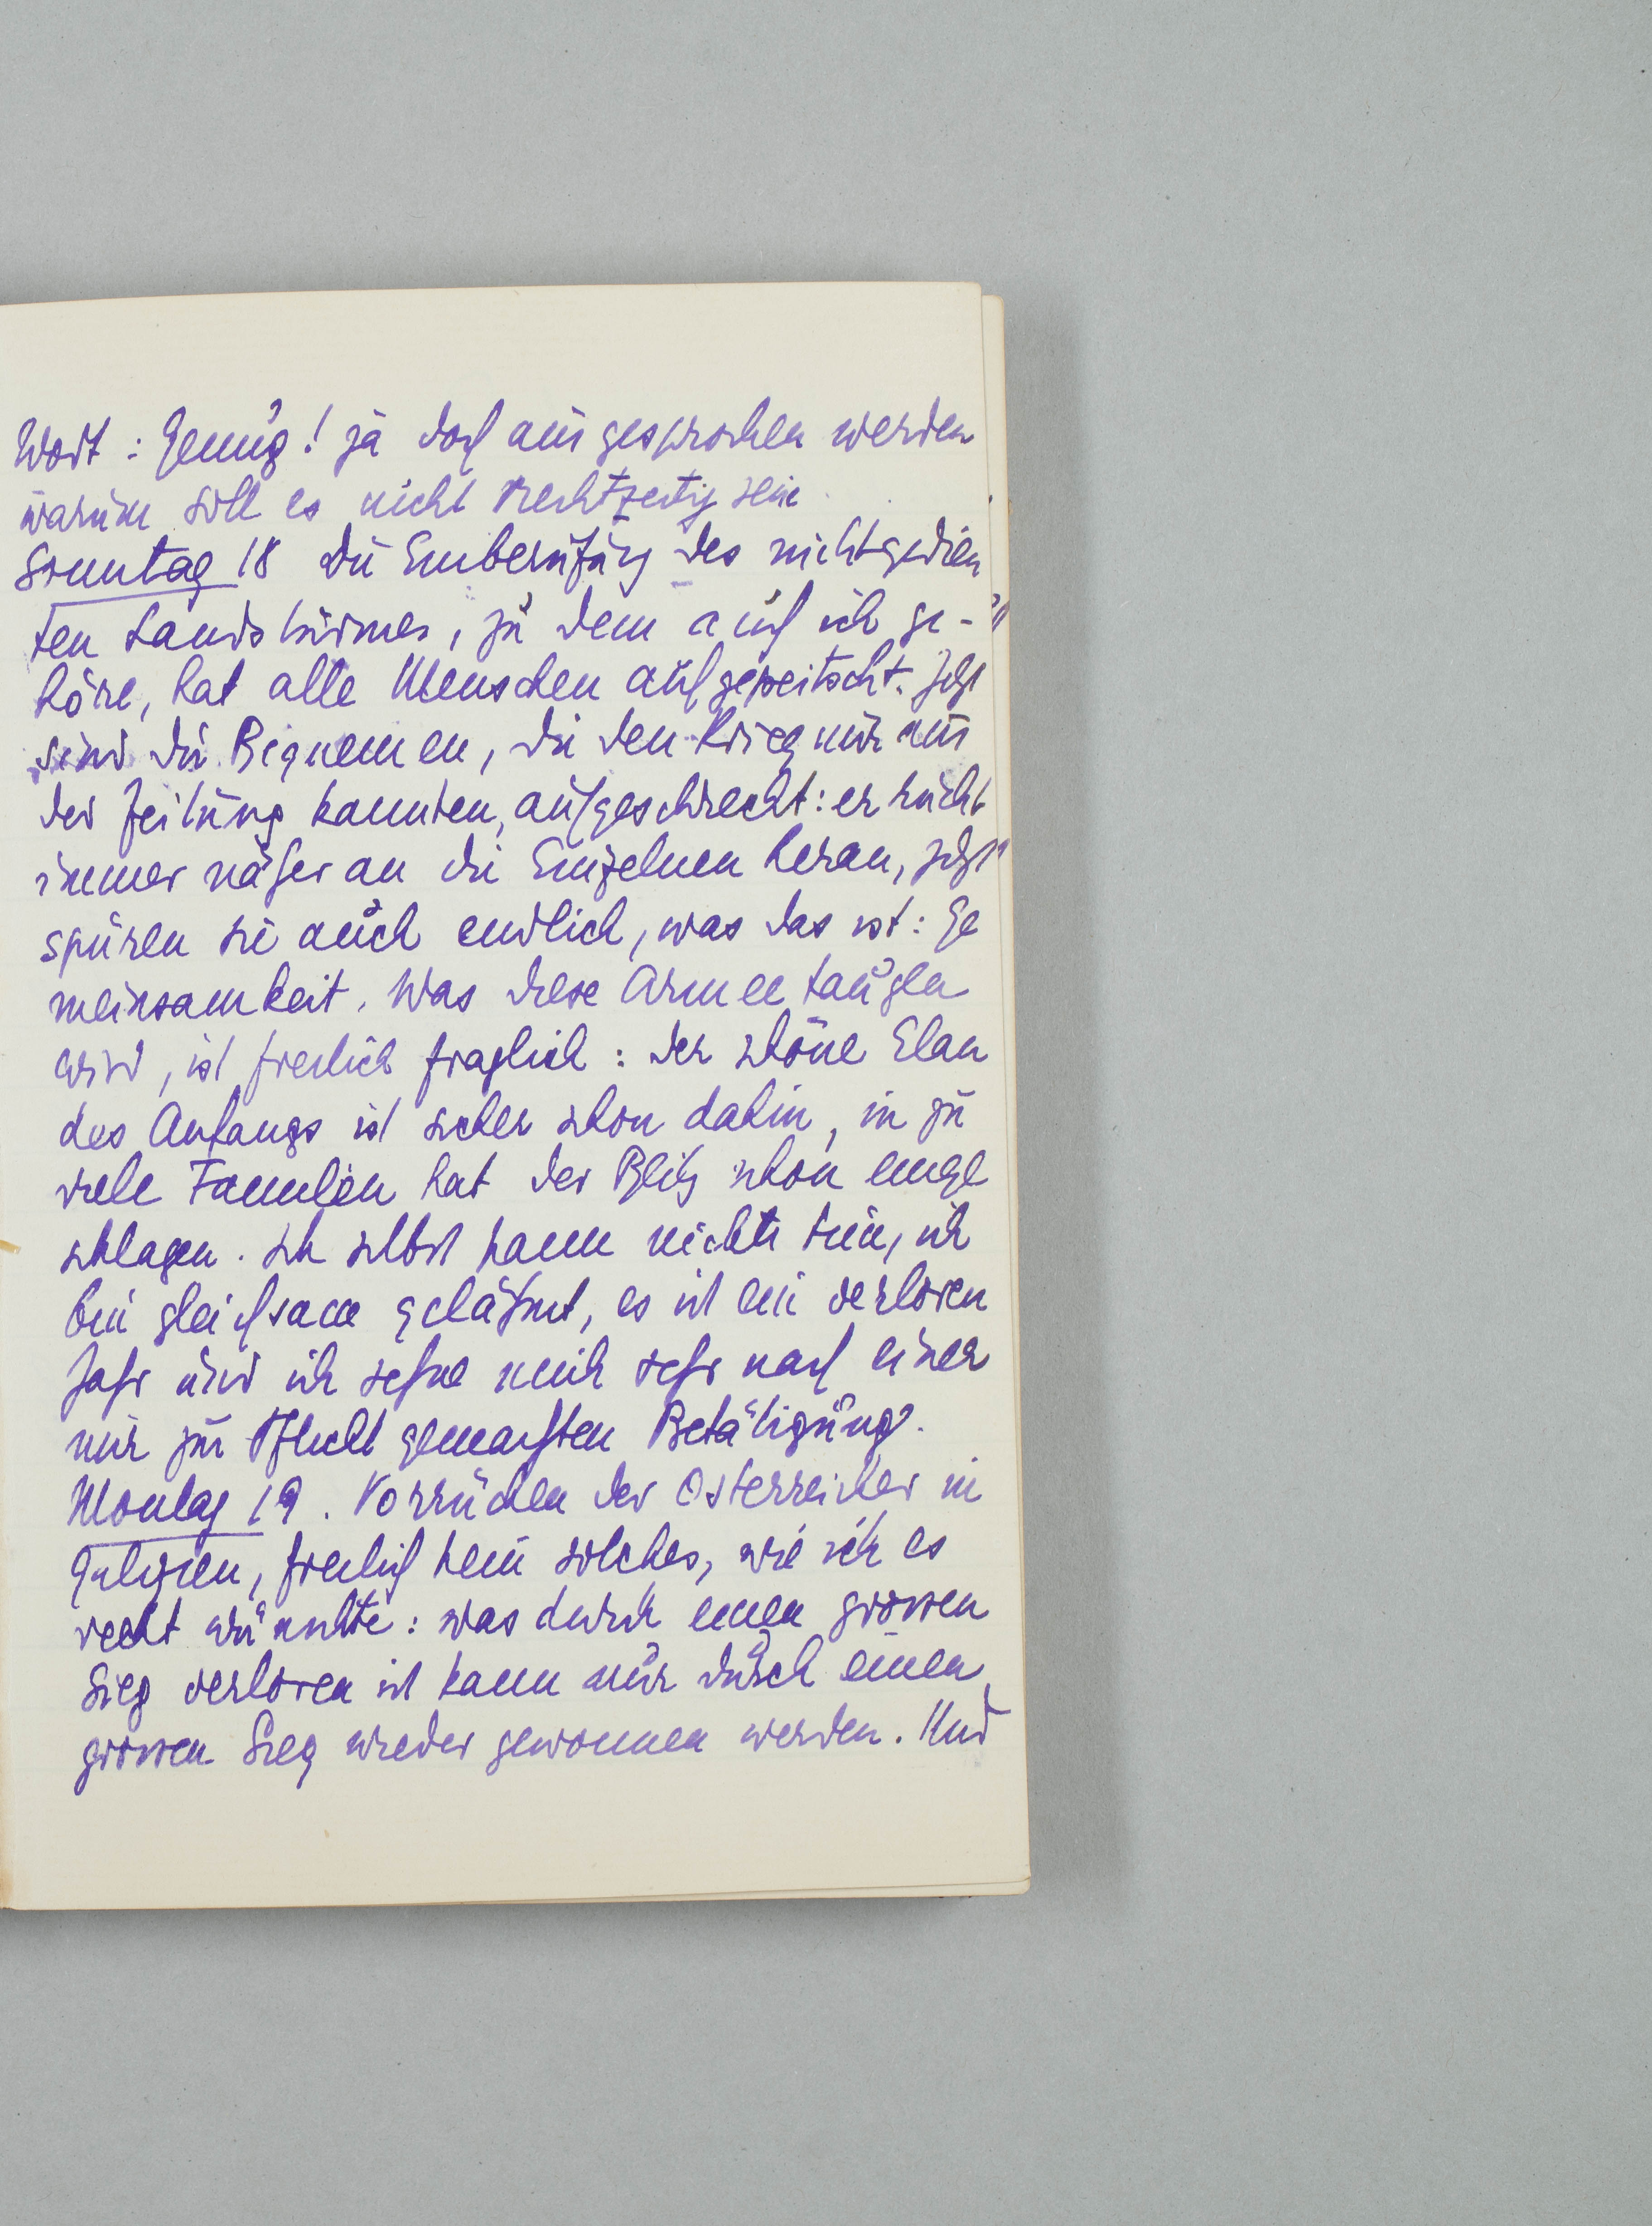 Wort: Genug! ja doch ausgesprochen werden
warum soll es nicht rechtzeitig sein
Sonntag 18 Die Einberufung des nichtgedien
ten Landsturmes, zu dem auch ich ge-
höre, hat alle Menschen aufgepeitscht. Jetzt
sind die Bequemen, die den Krieg nur aus
der Zeitung kannten, aufgeschreckt: er rückt
immer näher an die Einzelnen heran, jetzt
spüren sie auch endlich, was das ist: Ge
meinsamkeit. Was diese Armee taugen
wird, ist freilich fraglich: der schöne Elan
des Anfangs ist sicher schon dahin, in zu
viele Familien hat der Blitz schon einge
schlagen. Ich selbst kann nichts tun, ich
bin gleichsam gelähmt, es ist ein verloren
Jahr und ich sehne mich sehr nach einer
mir zur Pflicht gemachten Betätigung.
Montag 19. Vorrücken der Österreicher in
Galizien, freilich kein solches, wie ich es
recht wünschte: was durch einen grossen
Sieg verloren ist kann nur durch einen
grossen Sieg wieder gewonnen werden. Und